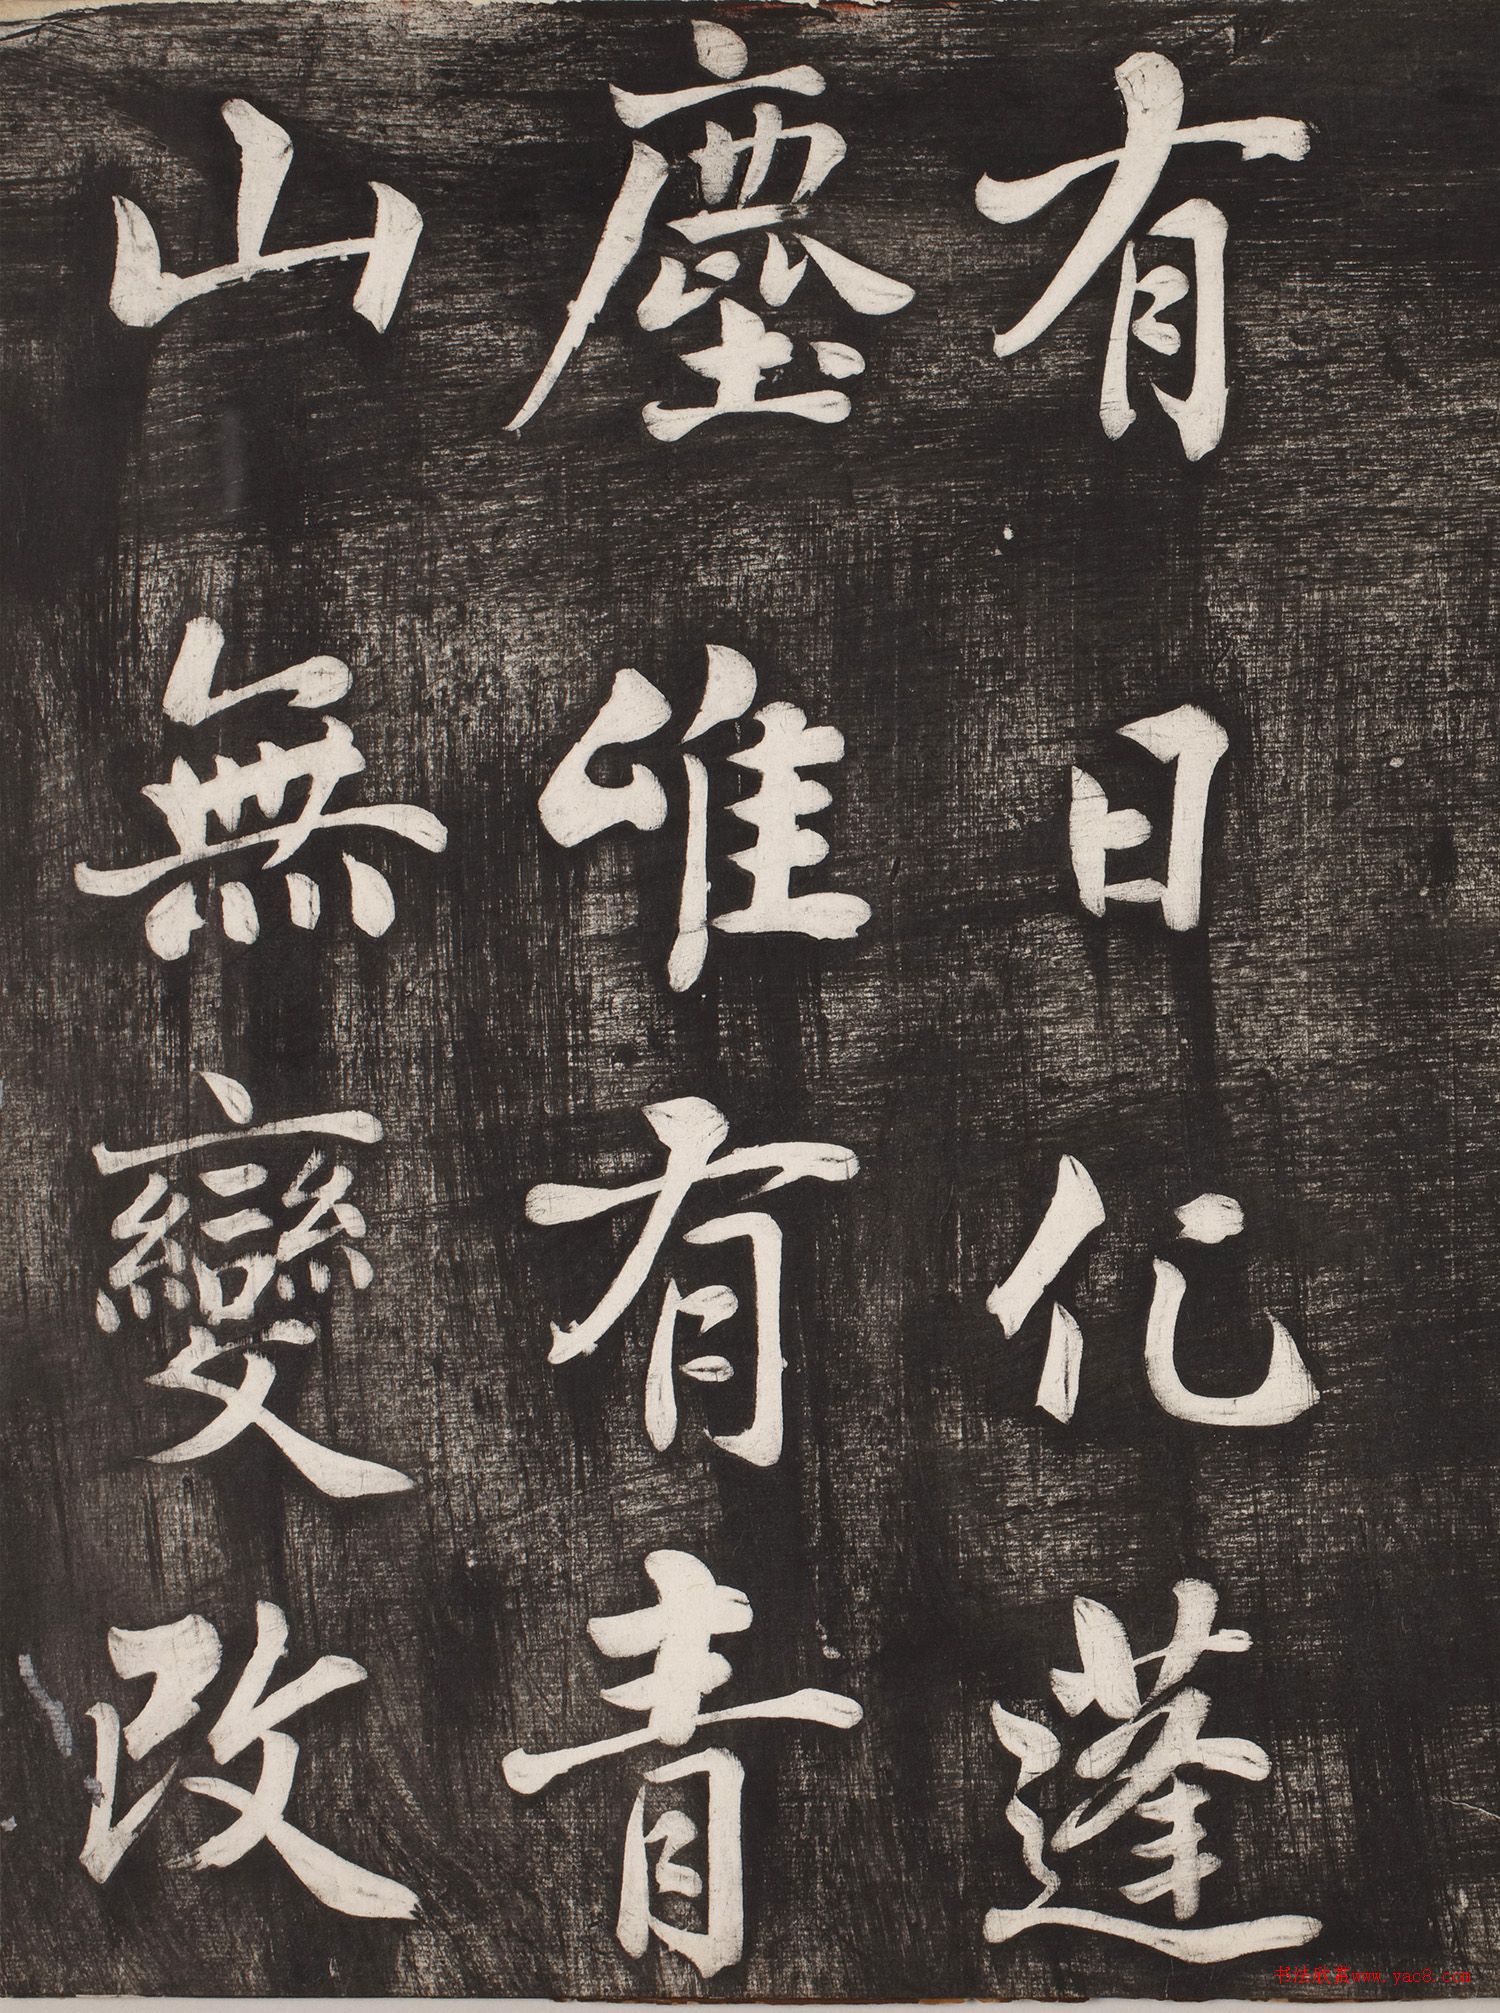 有日化蓬
塵唯有青
山無變改
书法欣赏www.yac8.com